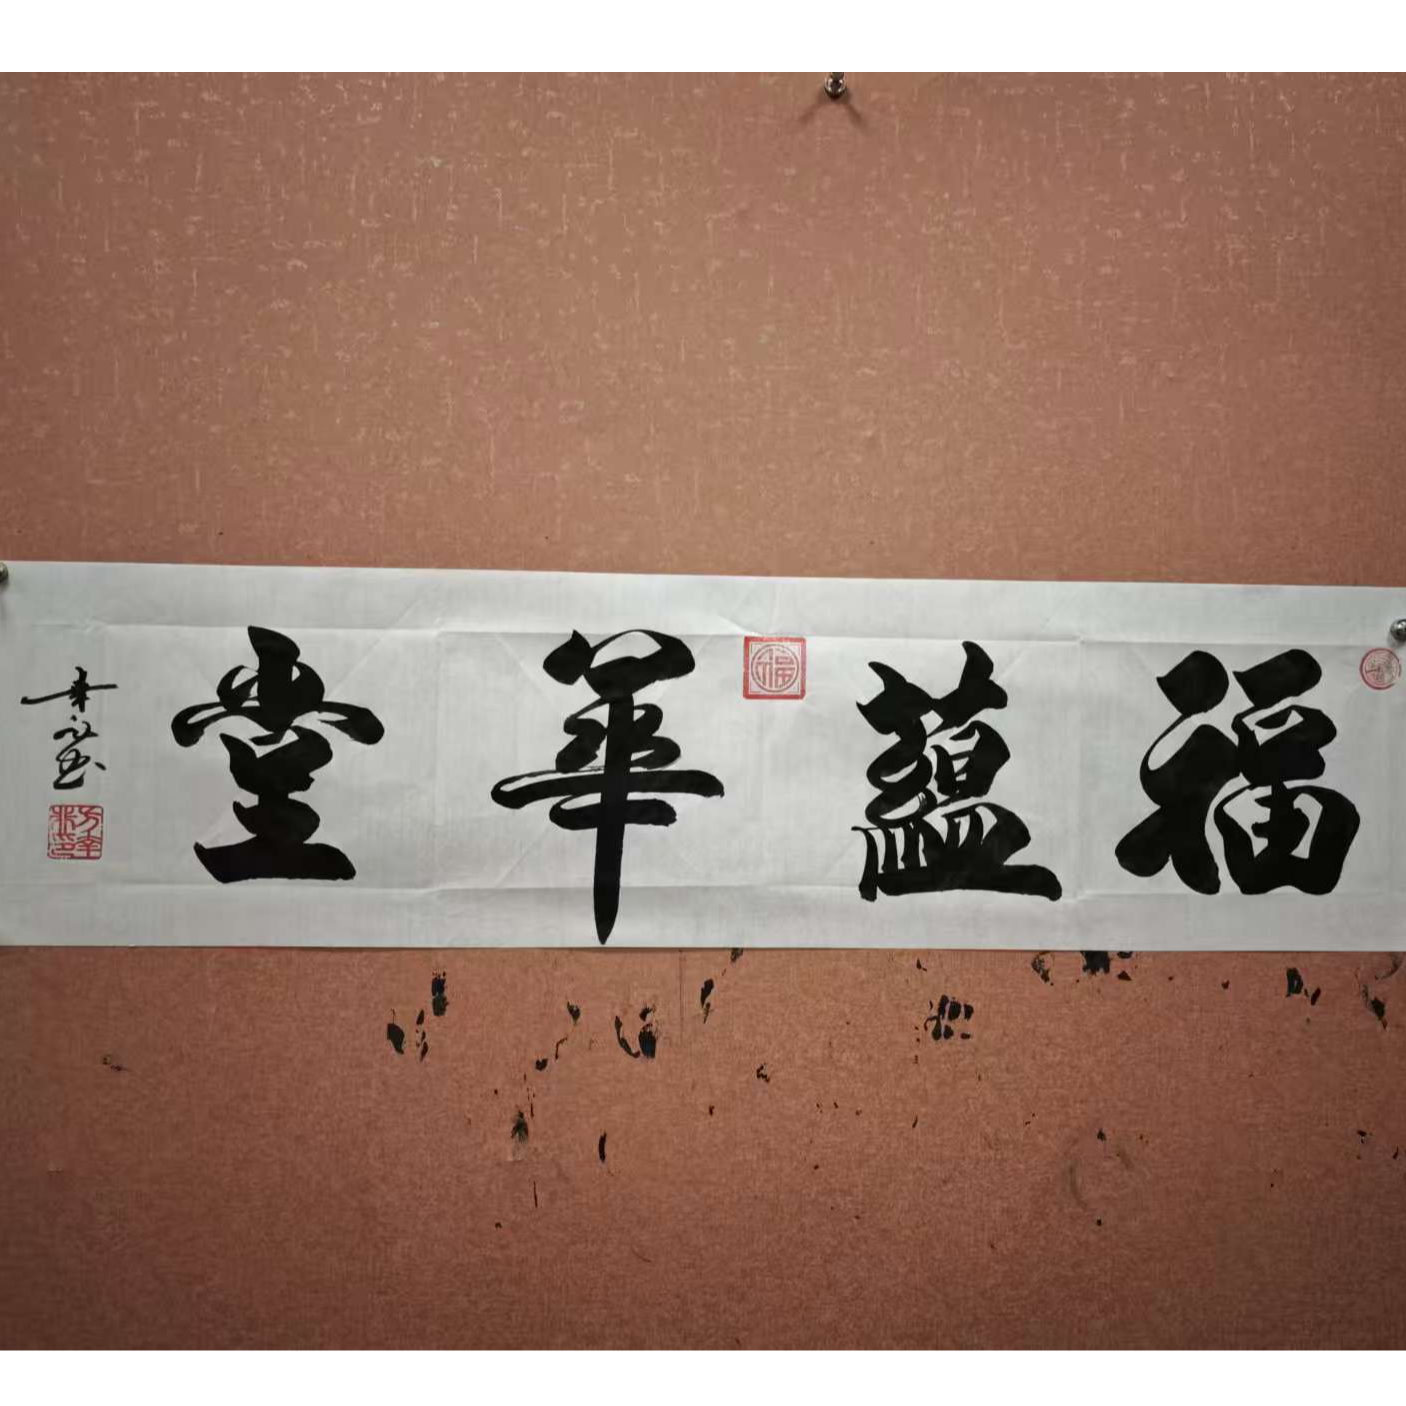 福蘊華堂
福